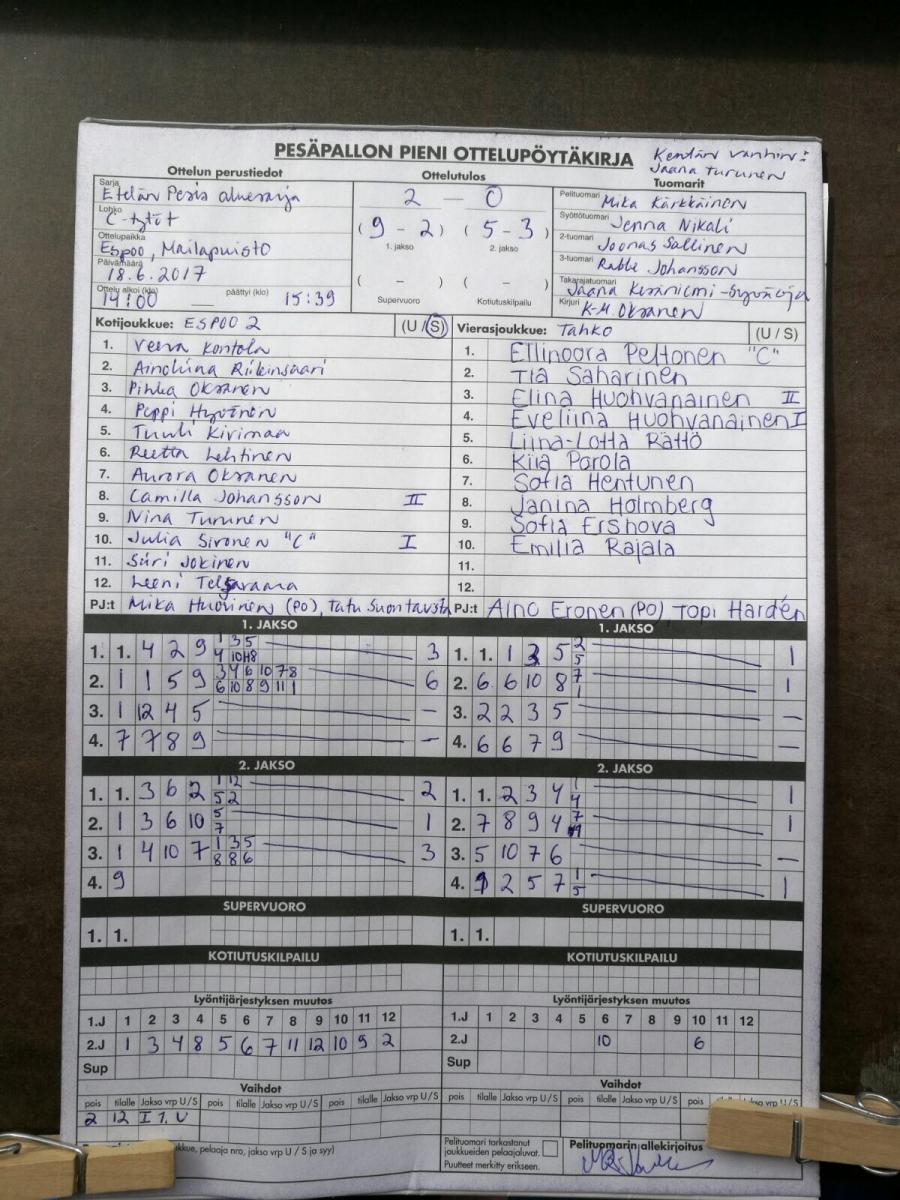 PESÄPALLON PIENI OTTELUPÖYTÄKIRJA
Kentän vanhin:
Jaana Turunen
Ottelun perustiedot
Ottelutulos
Tuomarit
Sarja
Etelän Pesis aluesarja
Lohko
C-tytöt
Ottelupaikka
Espoo, Mailapuisto
Päivämäärä
18.6.2017
Ottelu alkoi (klo) 14:00 päättyi (klo) 15:39
2 — 0
(9 – 2) (5 – 3)
1. jakso 2. jakso
( – ) ( – )
Supervuoro Kotiutuskilpailu
Pelituomari Mika Kärkkäinen
Syöttötuomari Jenna Nikali
2-tuomari Joonas Sallinen
3-tuomari Rabbe Johansson
Takarajatuomari Jaana Keräniemi-
Kirjuri K-M. Oksanen
Kotijoukkue: ESPOO 2 (U / S)
1. Veera Kontola
2. Ainoliina Riikinsaari
3. Pihka Oksanen
4. Peppi Hyvönen
5. Tuuli Kivimaa
6. Reetta Lehtinen
7. Aurora Oksanen
8. Camilla Johansson II
9. Nina Turunen
10. Julia Sironen "C" I
11. Siiri Jokinen
12. Leeni
PJ:t Mika Huovinen (PO), Tatu Suontausta
Vierasjoukkue: Tahko (U / S)
1. Ellinoora Peltonen "C"
2. Tia Saharinen
3. Elina Huohvanainen II
4. Eveliina Huohvanainen I
5. Liina-Lotta Rättö
6. Kiia Porola
7. Sofia Hentunen
8. Janina Holmberg
9. Sofia Ershova
10. Emilia Rajala
11.
12.
PJ:t Aino Eronen (PO) Topi Hardén
1. JAKSO
1. 1. 4 2 9 1 3 5 3
4 10 8
2. 1 1 5 9 3 4 6 10 7 8 6
6 10 8 9 11 1
3. 1 12 4 5 –
4. 7 7 8 9 –
1. JAKSO
1. 1. 1 3 5 2 1
5
2. 6 6 10 8 7 1
1
3. 2 2 3 5 –
4. 6 6 7 9 –
2. JAKSO
1. 1. 3 6 2 1 12 2
5 2
2. 1 3 6 10 5 1
7
3. 1 4 10 7 1 3 5 3
8 8 6
4. 9
2. JAKSO
1. 1. 2 3 4 1 1
4
2. 7 8 9 4 7 1
3. 5 10 7 6 –
4. 1 2 5 7 1 1
5
SUPERVUORO
1. 1.
SUPERVUORO
1. 1.
KOTIUTUSKILPAILU
KOTIUTUSKILPAILU
Lyöntijärjestyksen muutos
1.J 1 2 3 4 5 6 7 8 9 10 11 12
2.J 1 3 4 8 5 6 7 11 12 10 9 2
Sup
Lyöntijärjestyksen muutos
1.J 1 2 3 4 5 6 7 8 9 10 11 12
2.J 10 6
Sup
Vaihdot
pois tilalle Jakso vrp U / S pois tilalle Jakso vrp U / S pois tilalle Jakso vrp U / S
2 12 I 1. U
Vaihdot
pois tilalle Jakso vrp U / S pois tilalle Jakso vrp U / S pois
kkue, pelaaja nro, jakso vrp U / S ja syy)
Pelituomari tarkastanut
joukkueiden pelaajaluvat.
Puutteet merkitty erikseen.
Pelituomarin allekirjoitus